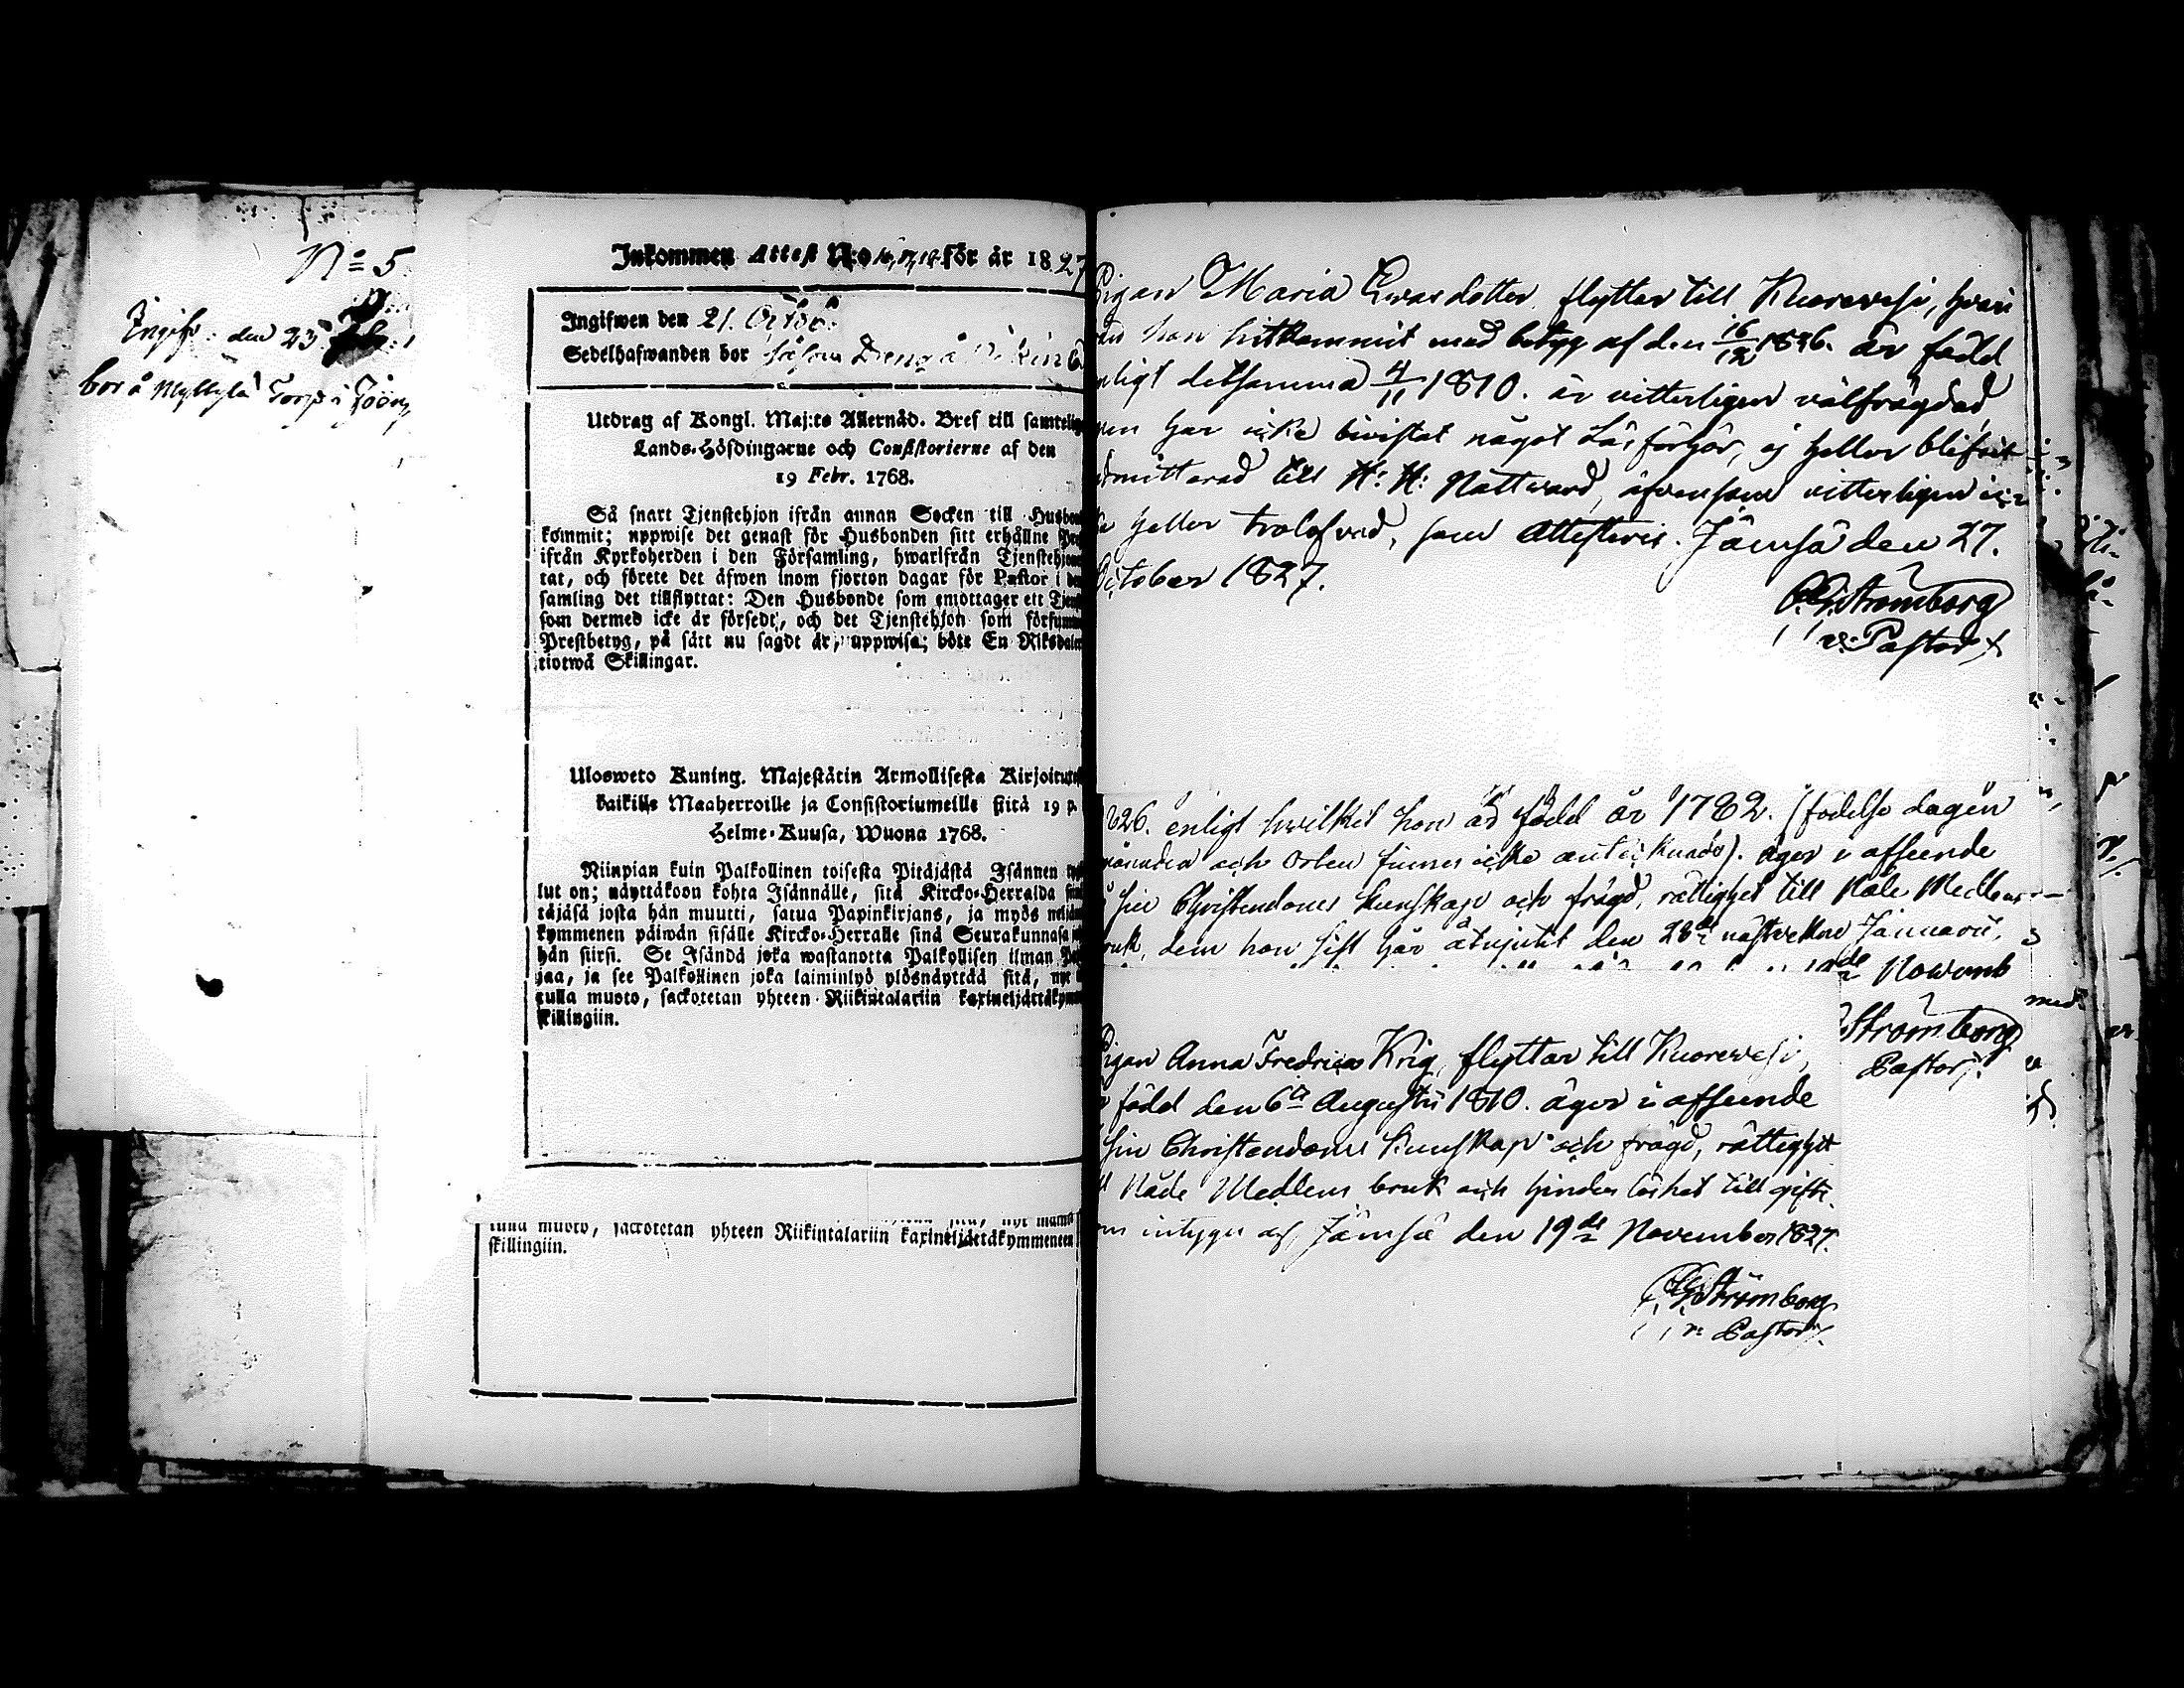 No 5
Ingifv: den 23
bor å Myllylä Torp i
Inkommen Attest N:o 16, 17, 18 för år 1827
Ingifwen den 21. Octob:
Sedelhafwanden bor såsom Dräng å
Utdrag af Kongl. Maj:ts Allernåd. Bref till samtelig
Lands-Höfdingarne och Consistorierne af den
19 Febr. 1768.
Så snart Tjenstehjon ifrån annan Socken till Husbon
kommit; uppwise det genast för Husbonden sitt erhållne Pre
ifrån Kyrkoherden i den Församling, hwarifrån Tjenstehjon
tat, och förete det äfwen inom fjorton dagar för Pastor i
samling det tillflyttat: Den Husbonde som emottager ett Tjen
som dermed icke är försedt, och det Tjenstehjon som försum
Prestbetyg, på sätt nu sagdt är, uppwisa; böte En Riksdaler
tiotwå Skillingar.
Ulosweto Kuning. Majestätin Armollisesta Kirjoituxe
kaikille Maaherroille ja Consistoriumeille siitä 19 p.
Helme-Kuusa, Wuona 1768.
Niinpian kuin Palkollinen toisesta Pitäjästä Isännen
lut on; näyttäköön kohta Isännälle, sitä Kircko-Herralda
täjäsä josta hän muutti, saatua Papinkirjans, ja myös neljän
kymmenen päiwän sisälle Kircko-Herralle siinä Seurakunnasa
hän siirsi. Se Isändä joka wastanotta Palkollisen ilman Pa
jaa, ja see Palkollinen joka laiminlyö ylösnäyttää sitä, nyt
tulla muoto, sackotetan yhteen Riikintalariin kaxineljättäkymm
skillingiin.
tulla muoto, sackotetan yhteen Riikintalariin kaxineljättäkymmeneen
skillingiin.
Pigan Maria Ewasdotter flyttar till Kuorevesi, hvari
från hon hitkommit med betyg af den 16/12 1826. är född
enligt detsamma 4/11 1810. är vitterligen välfrägdad
men har icke bivistat något Läsförhör, ej heller blifvit
admitterad till H: H: Nattward, äfvensom vitterligen ic-
ke heller trolofvad, som Attesteris. Jämsä den 27.
October 1827.
Strömborg
v: Pastor
1826. enligt hwilket hon är född år 1782. (födelse dagen
månaden och orten finnes icke antecknade). äger i afseende
å sin Christendoms kunskap och frägd, rättighet till Nåde Medlens
bruk, dem hon sist här åtnjutit den 28de nästvekne Januarii,
de Novemb
Strömborg
Pastor
Pigan Anna Fredrica Krig, flyttar till Kuorevesi,
är född den 6te Augusti 1810. äger i afseende
å sin Christendoms kunskap och frägd, rättighet
till Nåde Medlens bruk och hinderslöshet till gifte
som intygas af, Jämsä den 19de November 1827.
Strömborg
v. Pastor